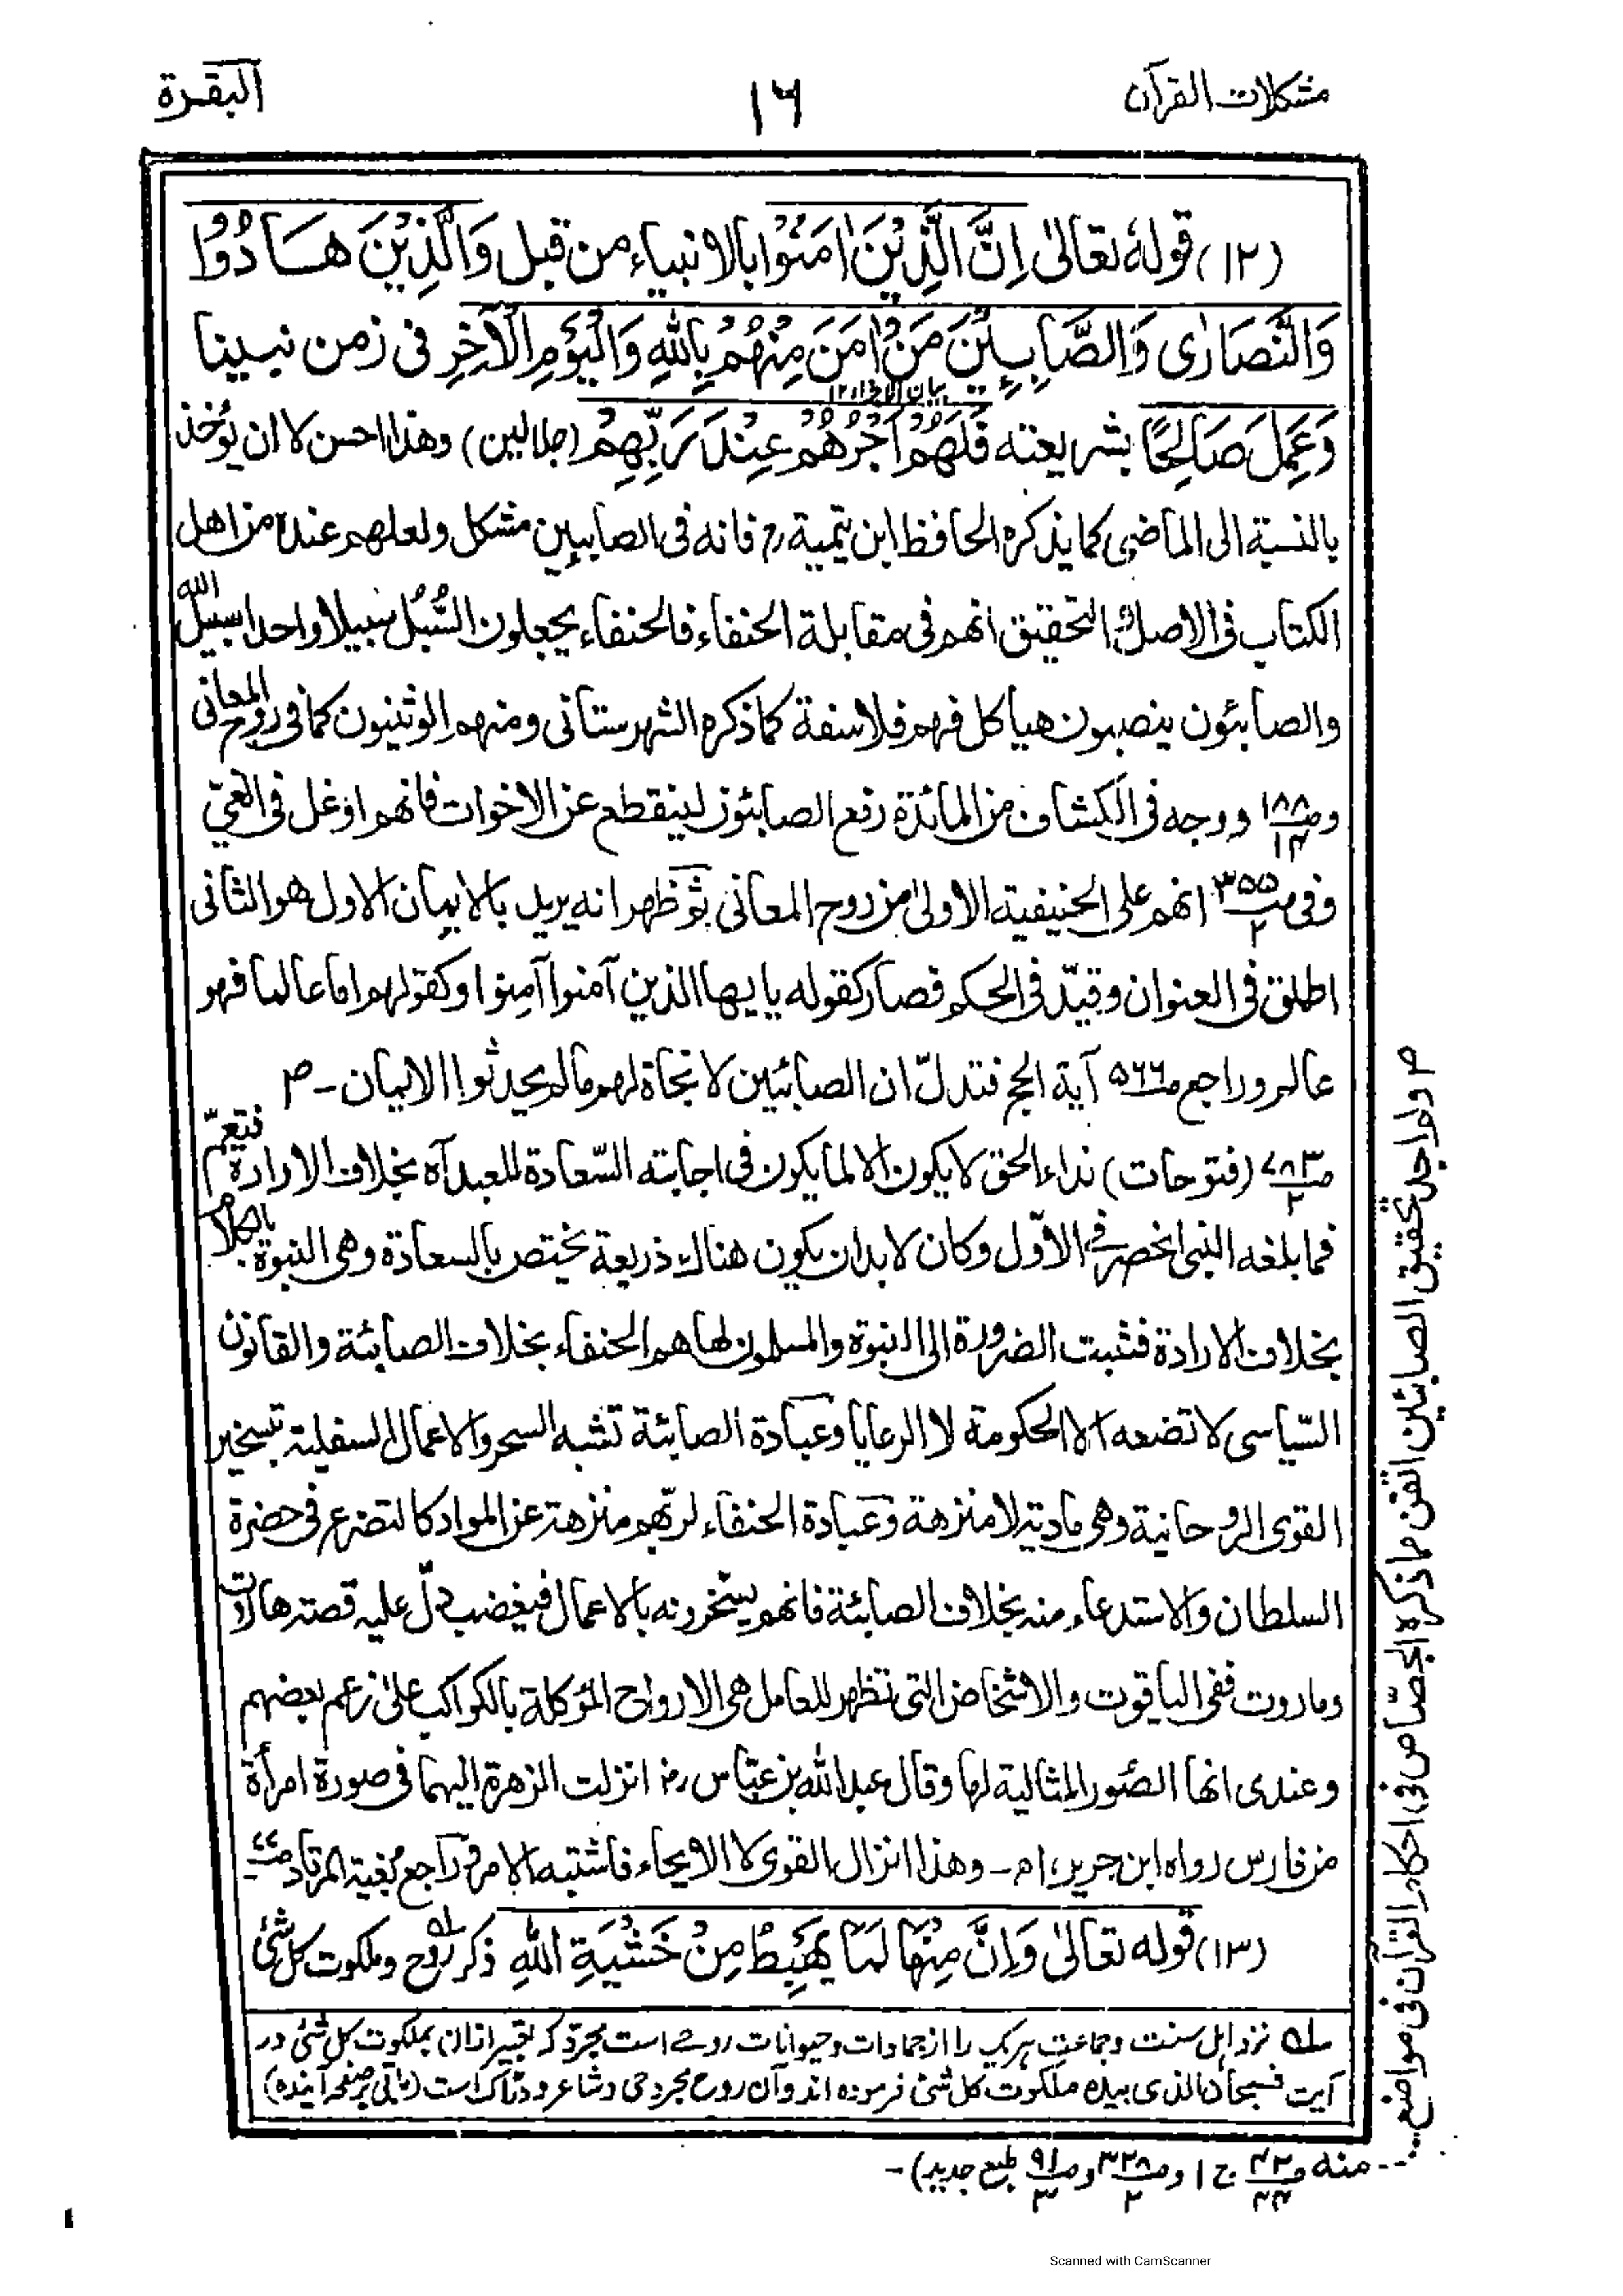 مشکلات القرآن
١٦
البقرة
(١٢) قولهٗ تعالیٰ اِنَّ الَّذِيْنَ اٰمَنُوْا بالانبياء من قبل وَالَّذِيْنَ هَادُوْا
وَالنَّصَارٰى وَالصَّابِئِيْنَ مَنْ اٰمَنَ مِنْهُمْ بِاللّٰهِ وَالْيَوْمِ الْاٰخِرِ فى زمن نبينا
وَعَمِلَ صَالِحًا بشريعته فَلَهُمْ اَجْرُهُمْ عِنْدَ رَبِّهِمْ (جلالين) وهذا احسن لا ان يؤخذ
بالنسبة الى الماضى كما يذكره الحافظ ابن تيمية رح فانه فى الصابيين مشكل ولعلهم عنده من اهل
الكتاب فى الاصل والتحقيق انهم فى مقابلة الحنفاء فالحنفاء يجعلون السُّبُل سبيلا واحدا سبيل الله
والصابئون ينصبون هياكل فهم فلاسفة كما ذكره الشهرستانى ومنهم الوثنيون كما فى روح المعانى
وص١٨٨/١٣ ووجه فى الكشاف من المائدة رفع الصابئون لينقطع عن الاخوات فانهم اوغل فى الغىّ
وفى ص٣٥٥/٢ انهم على الحنيفية الاولىٰ من روح المعانى ثم ظهر انه يريد بالايمان الاول هو الثانى
اطلق فى العنوان وقيّد فى الحكم فصار كقوله يا يها الذين آمنوا آمنوا وكقولهم اما عالما فهو
عالم وراجع ص٥٦٦ آية الحج فتدلّ ان الصابئين لا نجاة لهم مالم يحدثوا الايمان ـ م
ص٧٨٣/٢ (فتوحات) نداء الحق لا يكون الا لما يكون فى اجابته السّعادة للعبد آه بخلاف الارادة فتعمّ
فما بلغه النبى انحصر فى الاوّل وكان لابد ان يكون هناك ذريعة يختص بالسعادة وهى النبوة بالكلام
بخلاف الارادة فثبت الضرورة الى النبوة والمسلمون لها هم الحنفاء بخلاف الصابئة والقانون
السّياسى لا تضعه الا الحكومة لا الرعايا وعبادة الصابئة تشبه السحر والاعمال السفلية تسخير
القوى الروحانية وهى مادية لا منزهة وعبادة الحنفاء لربّهم منزهة عن المواد كالتضرع فى حضرة
السلطان والاستدعاء منه بخلاف الصابئة فانهم يسخرونه بالاعمال فيغضب دلّ عليه قصة هاروت
وماروت ففى الياقوت والاشخاص التى تظهر للعامل هى الارواح المؤكلة بالكواكب علىٰ زعم بعضهم
وعندى انها الصّور المثالية لها وقال عبد الله بن عبّاس رض انزلت الزهرة اليهما فى صورة امرأة
من فارس رواه ابن جرير، ام ـ وهذا انزال القوى لا الايحاء فاشتبه الامر وراجع بغية المرتاد ص٧٧ـ
(١٣) قوله تعالیٰ وَاِنَّ مِنْهَا لَمَا يَهْبِطُ مِنْ خَشْيَةِ اللّٰهِ ذكر روح وملكوت كل شئ
لـه نزد اہل سنت وجماعت ہر یک را از جمادات وحیوانات روحے است مجرّد کہ تعبیر ازان بملکوت کل شئ در
آیت فسبحان الذی بیدہ ملکوت کل شئ فرمودہ اند وآن روح مجرد حی وشاعر ودراک است (باقی بر صفحہ آیندہ)
م ولم اجد تحقيق الصابئين اتقن مما ذكره الجصّاص فى احكام القرآن فى مواضع
منه ص٤٣/٤٤ ج١ وص٣٢٨/٢ وص٩١/٣ طبع جديد)ـ
Scanned with CamScanner